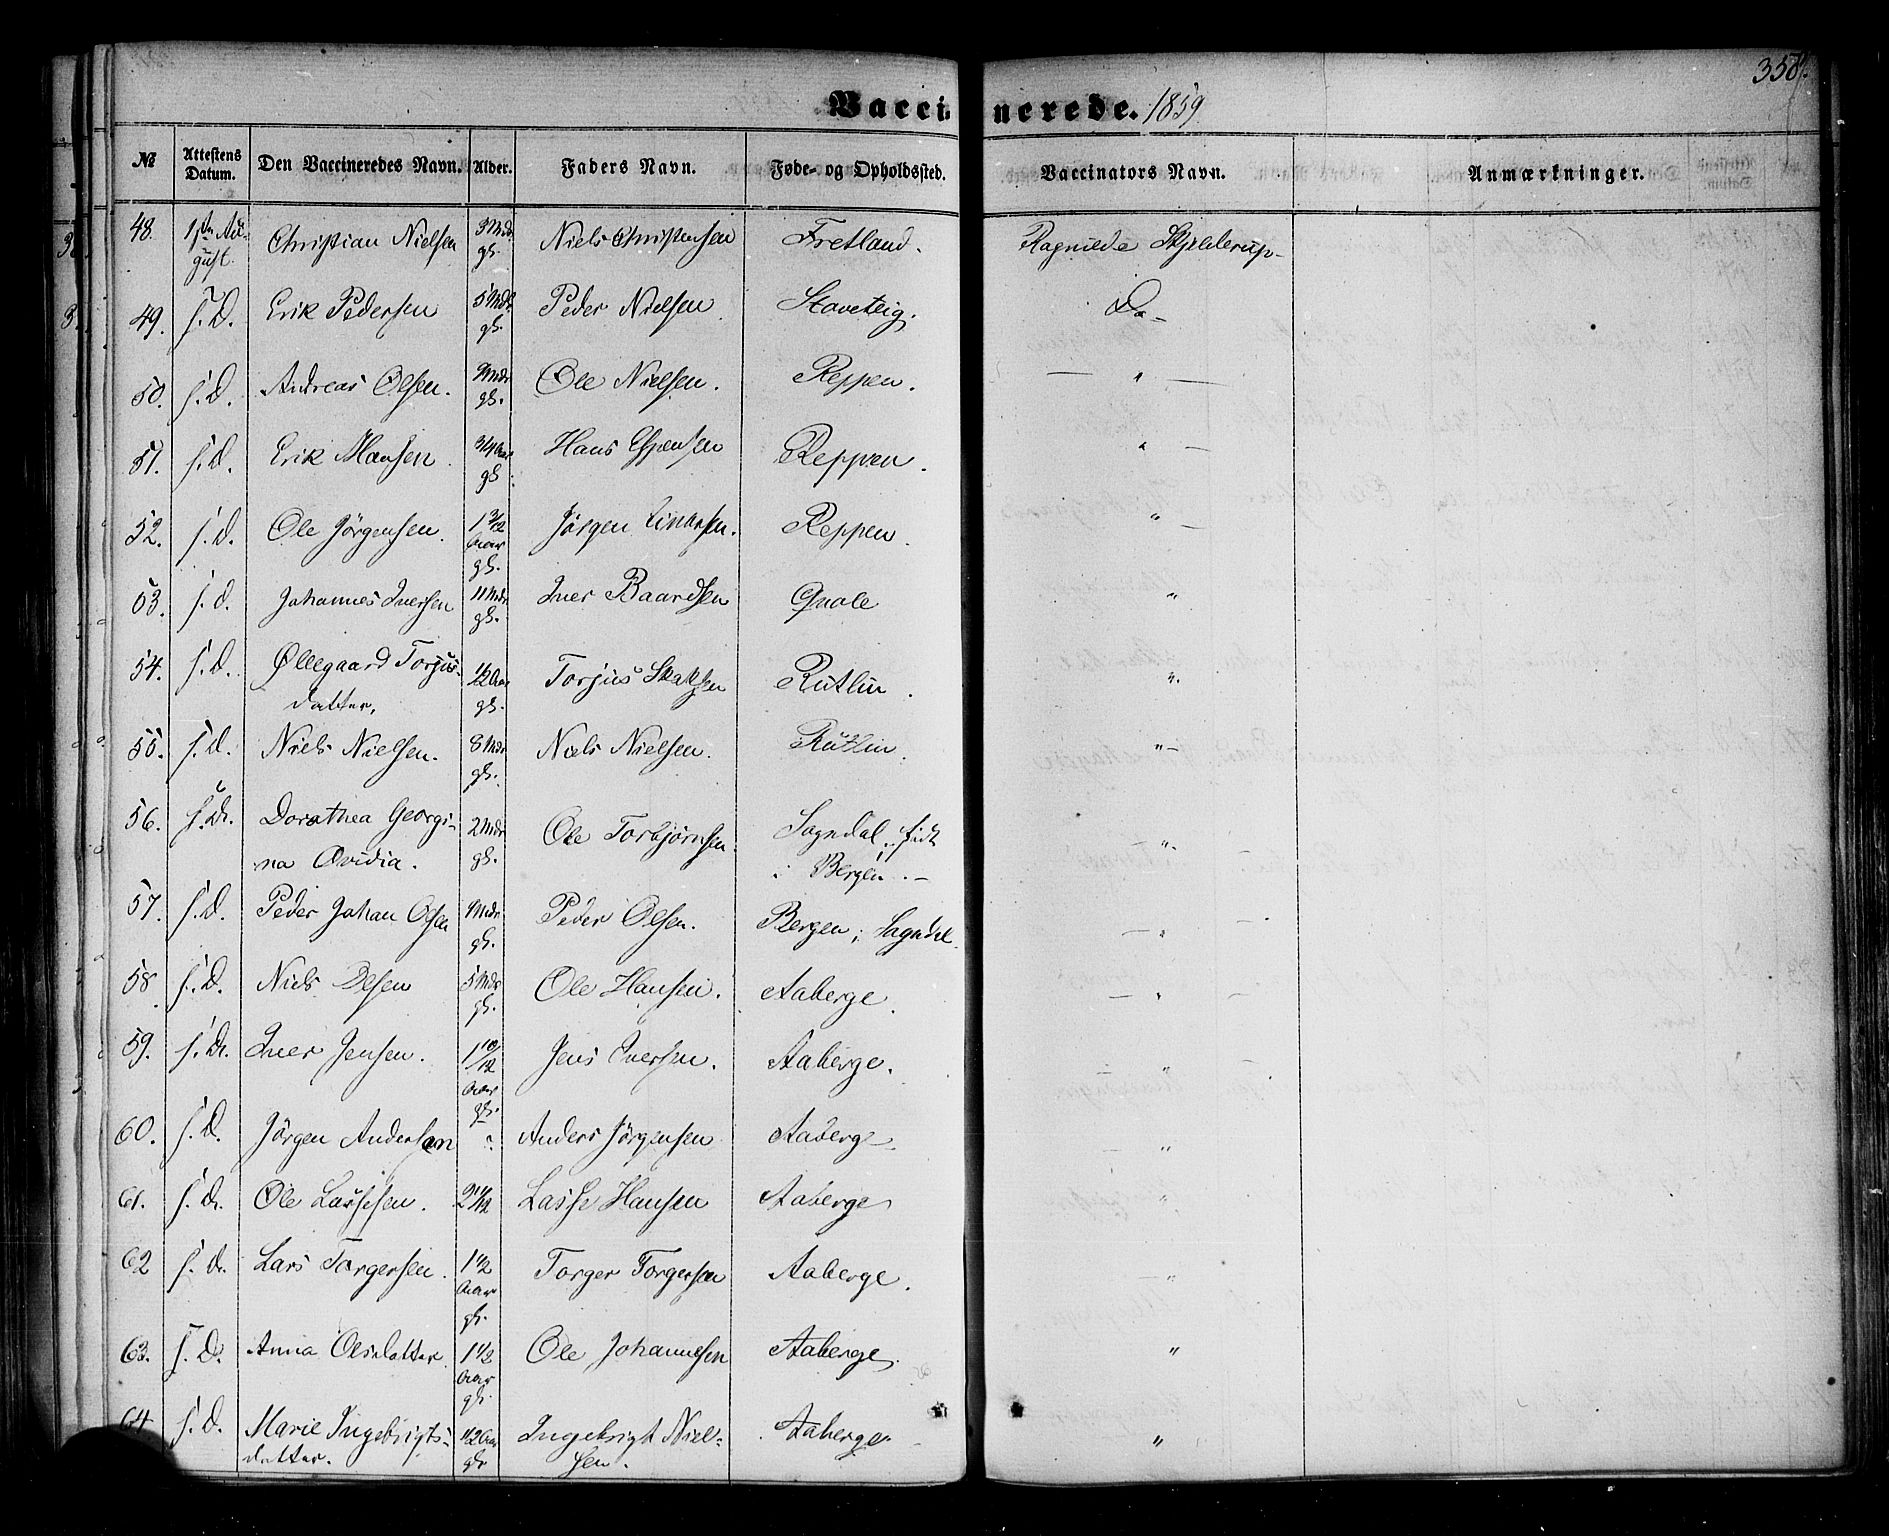 358.
Vaccinerede. 1859
№ Attestens Datum. Den Vaccineredes Navn. Alder. Faders Navn. Føde- og Opholdssted. Vaccinators Navn. Anmærkninger.
48. 1ste August. Christian Nielsen 3 Mdr gl. Niels Christensen Fretland. Ragnilde Skjelderup
49. s. D. Erik Pedersen 5 Mdr gl. Peder Nielsen Staveteig. Do
50. s. D. Andreas Olsen. 9 Mdr gl. Ole Nielsen. Reppen. — " —
51. s. D. Erik Hansen 3/4 Aar gl. Hans Espensen Reppen. "
52. s. D. Ole Jörgensen. 1 3/12 Aar gl. Jörgen Einarsen. Reppen. " —
53. s. d. Johannes Iversen 11 Mdr gl. Iver Baardsen Qvale "
54. s. D. Øllegaard Torjusdatter, 1/2 Aar gl. Torjus Rutlin. ".
55. s. D. Niels Nielsen. 8 Mdr gl. Niels Nielsen. Rutlin. " -
56. s. D. Dorothea Georgina Ovidia. 2 Mdr gl. Ole Torbjørnsen. Sogndal, født i Bergen. — — ".
57. s. D. Peder Johan Olsen 9 Mdr gl. Peder Olsen. Bergen, Sogndal. — " —
58. s. D. Niels Olsen 5 Mdr gl. Ole Hansen. Aaberge. — " —
59. s. D. Iver Jensen. 1 10/12 Aar gl. Jens Iversen. Aaberge. — "
60. s. D. Jörgen Andersen " Anders Jörgensen Aaberge — "
61. s. D. Ole Lassesen. 2 11/12 Lasse Hansen Aaberge "
62 s. D. Lars Torgersen. 1 1/2 Aar gl. Torger Torgersen Aaberge. — "
63. s. D. Anna Olsdatter. 1 1/2 Aar gl. Ole Johannesen Aaberge. "
64 s. D. Marie Ingebrigtsdatter. 1/2 Aar gl Ingebrigt Nielsen. Aaberge. "